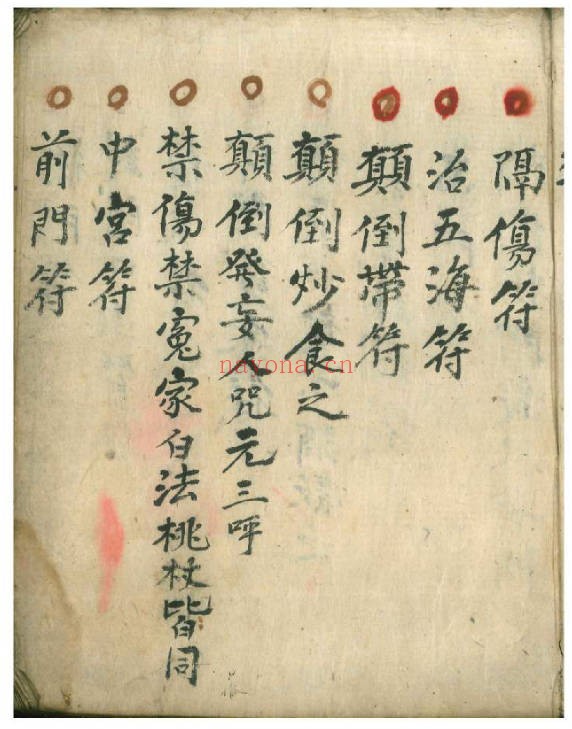 隔傷符
治五海符
顛倒帶符
顛倒炒食之
顛倒發妄人咒元三呼
禁傷禁冤家白法桃杖皆同
中宮符
前門符
nayona.cn